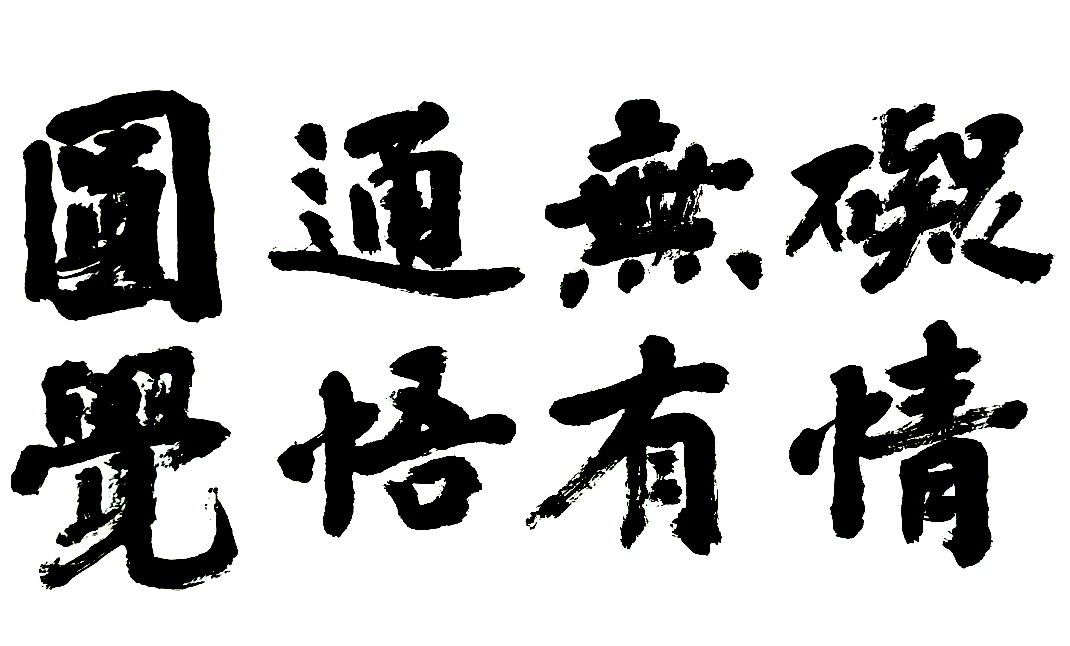 圓通無礙
覺悟有情